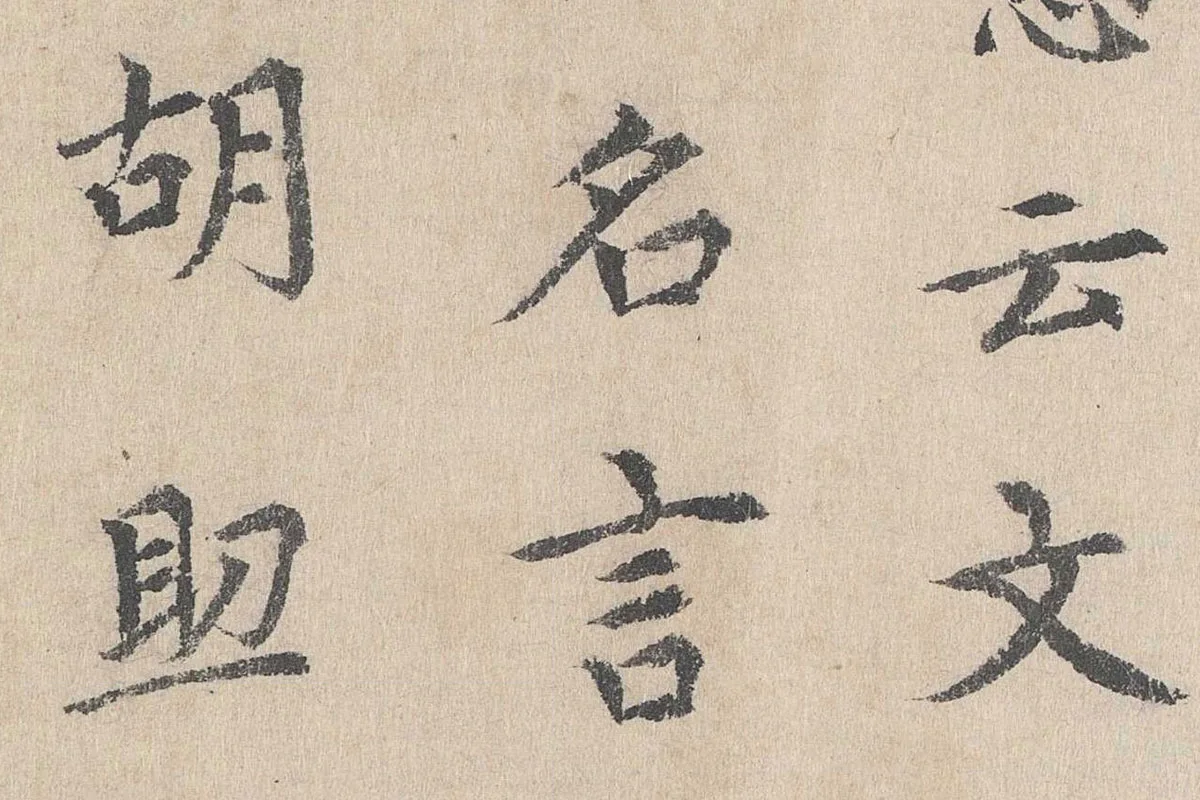 云文
名言
胡助